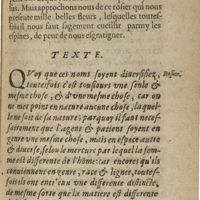 lus. Mais approchons nous de ce rosier qui nous
presente mille belles fleurs, lesquelles toutes-
fois il nous faut sagement cueillir parmy les
espines, de peur de nous esgratigner.
TEXTE.
QVoy que ces noms soyent diuersifiez,
toutesfois c'est tousiours vne seule &
mesme chose, & d'vne mesme chose, car on
ne met point en nature aucune chose, laquel-
le ne soit de sa nature: parquoy il faut neces-
sairement que l'agent & patient soyent en
genre vne mesme chose, mais en espece autre
& diuerse, selon le mercure par lequel la fem-
me est differente de l'homme: car encores qu'ils
conuiennent en genre, race & lignee, toutes-
fois ils ont entr'eux vne difference distincte,
de mesme sorte que la matiere est differente